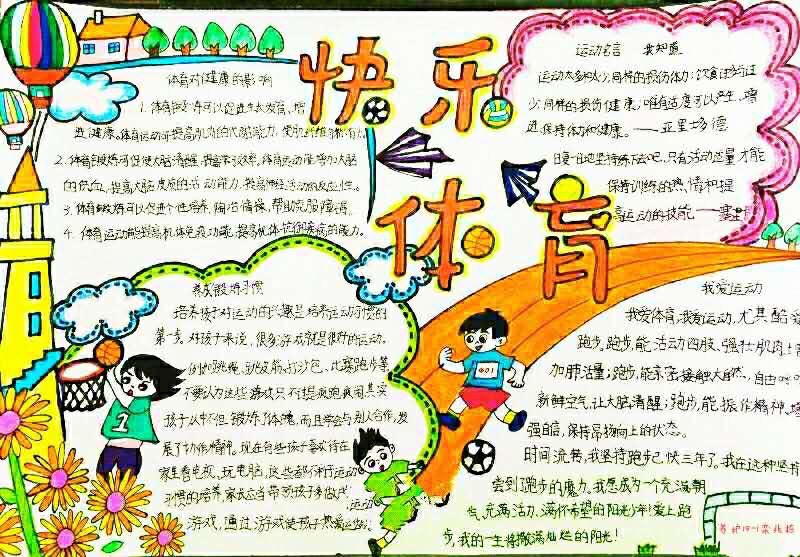 快乐
体育
体育对健康的影响
1. 体育锻炼可以促进生长发育、增
进健康。体育运动可提高肌肉的代谢能力,使肌纤维
2. 体育锻炼可促使大脑清醒,提高工效率。体育运动能增加大脑
的供血,提高大脑皮质的活动能力,提高神经活动的反应性。
3. 体育锻炼可以促进个性培养、陶冶情操、帮助克服障碍。
4. 体育运动能提高机体免疫功能,提高机体抗御疾病的能力。
运动名言 我知道
运动太多和太少,同样的损伤体力;饮食过多与过
少,同样的损伤健康;唯有适度可以产生、增
进、保持体力和健康。——亚里士多德
日复一日地坚持练下去吧,只有活动适量才能
保持训练的热情和提
高运动的技能。——塞
养成锻炼习惯
培养孩子对运动的兴趣是培养运动习惯的
第一步,对孩子来说,很多游戏就是很好的运动。
例如跳绳、踢皮筋、打沙包、比赛跑步等,
不要认为这些游戏只不过是跑跑闹闹,其实
孩子从中不但锻炼了体魄,而且学会与别人合作,发
展了协作精神。现在有些孩子喜欢待在
家里看电视、玩电脑,这些都不利于运动
习惯的培养,家长应当带领孩子多做户外运动
游戏,通过游戏使孩子热爱运动。
我爱运动
我爱体育,我爱运动,尤其酷爱
跑步。跑步,能活动四肢,强壮肌肉,增
加肺活量;跑步,能亲密接触大自然,自由呼吸
新鲜空气,让大脑清醒;跑步,能振作精神,增
强自信,保持昂扬向上的状态。
时间流转,我坚持跑步已快三年了。我在这种坚持
尝到了跑步的魔力。我愿成为一个充满朝
气、充满活力、满怀希望的阳光少年!爱上跑
步,我的一生将撒满灿烂的阳光!
001
1